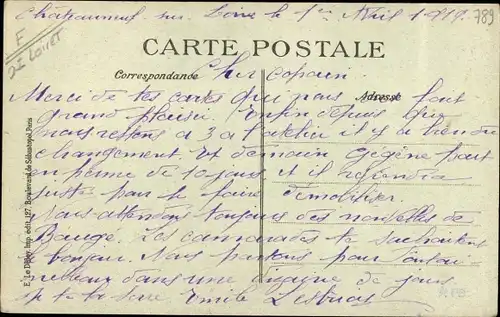 Châteauneuf sur Loire le 1er Avril 1919. 789
F
Loiret
CARTE POSTALE
Correspondance
Adresse
Cher copain
Merci de tes cartes qui nous font
grand plaisir. Enfin depuis que
nous restons à 3 à l'atelier il y a
changement. Et demain Gégène part
en perme de 10 jours et il
juste pour le faire démobiliser
Nous attendons toujours des nouvelles de
Baugé. Les camarades te souhaitent
bonjour. Nous partons pour
dans une dizaine de jours
je te la serre Emile
E. Le Deley, Imp. édit. 127, Boulevard de Sébastopol, Paris